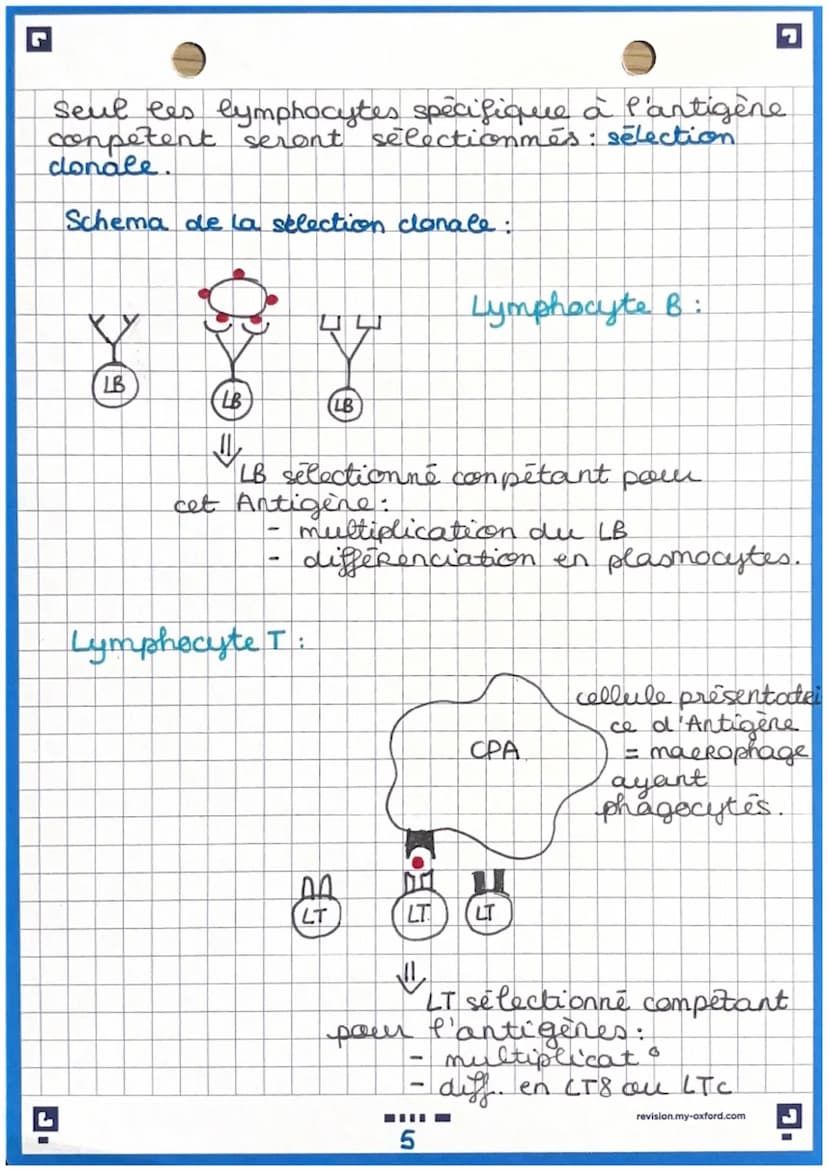 Seul les lymphocytes spécifique à l'antigène
conpétent seront sélectionnés : sélection
clonale.
Schema de la sélection clonale :
Lymphocyte B :
LB
LB
LB
LB sélectionné conpétant pour
cet Antigène :
- multiplication du LB
- différenciation en plasmocytes.
Lymphocyte T :
cellule présentatri
ce d'Antigène
= macrophage
ayant
phagocytés.
CPA
LT
LT
LT
LT sélectionné compétant
pour l'antigènes :
- multiplicat°
- diff. en LT8 ou LTc
revision.my-oxford.com
5